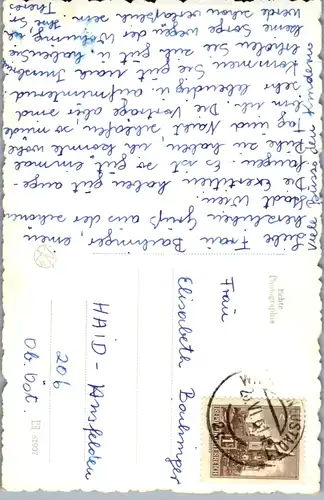 Liebe Frau Bachinger, einen
herzlichen Gruß aus der schönen
Stadt Wien.
Die Exerzitien haben gut ange-
fangen. Es ist so gut einmal
Ruhe zu haben, ich könnte wohl
Tag und Nacht schlafen, so müde
bin ich. Die Vorträge aber sind
sehr lebendig u. aufmunternd.
Kommen Sie gut nach Innsbr.
erholen Sie sich gut u. haben Sie
keine Sorge wegen der Wohnung, ich
werde schon verläßlich sein. Ihre Sr.
Viele Grüsse dem
echte
Photographie
Frau
Elisabeth Bachinger
HAID - Ansfelden
206
Ob. Öst.